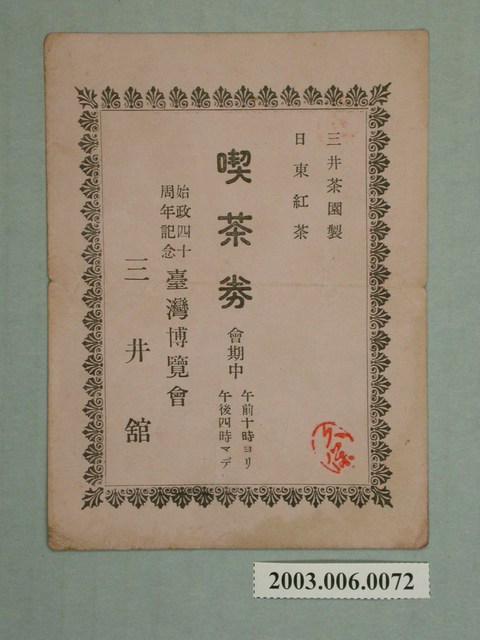 三井茶園製
日東紅茶
喫茶劵
會期中
午前十時ヨリ
午後四時マデ
始政四十
周年記念
臺灣博覽會
三井舘
2003.006.0072